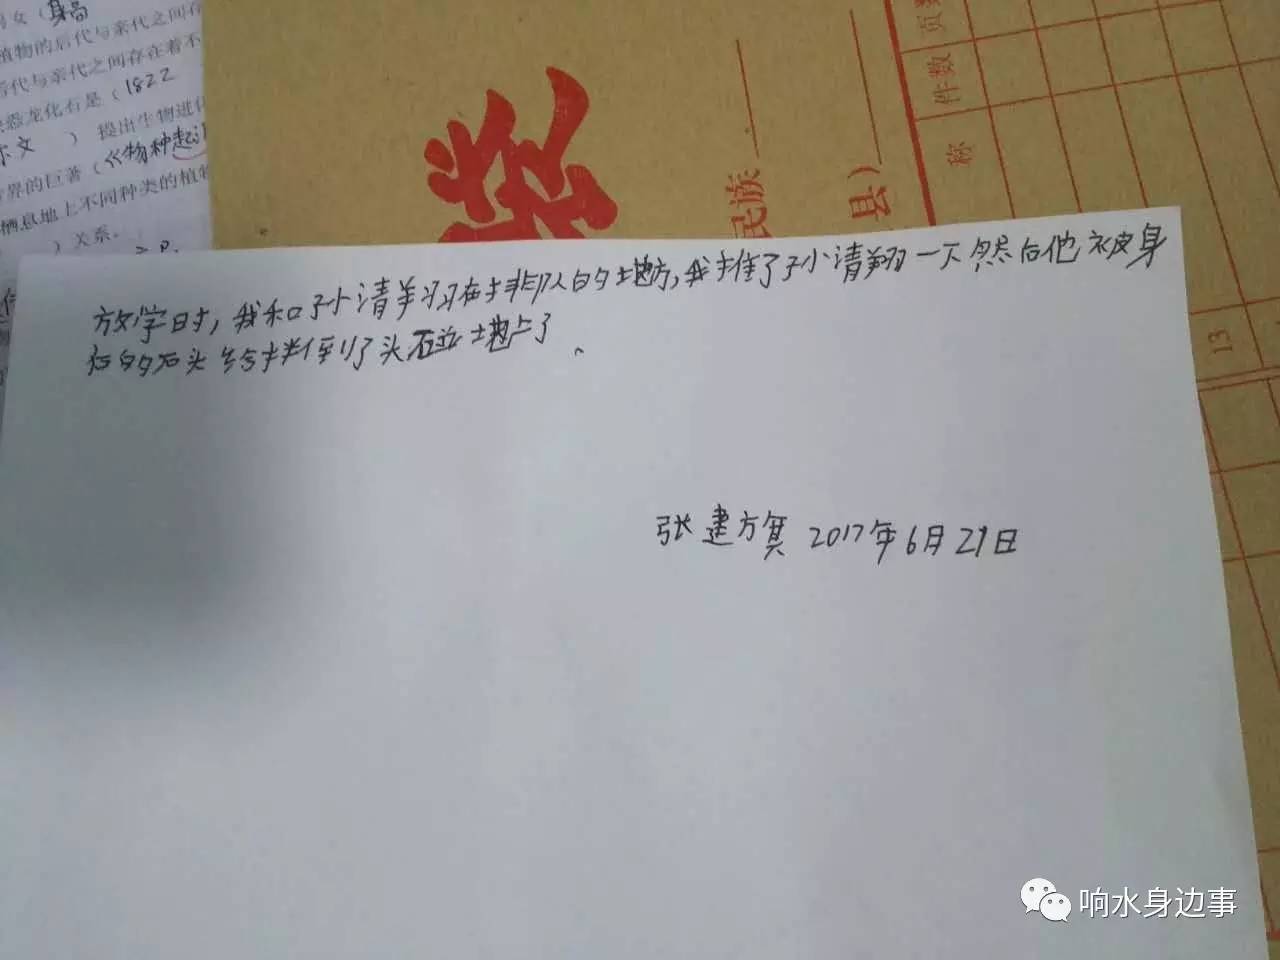 男女（身高
植物的后代与亲代之间存
后代与亲代之间存在着不
恐龙化石是（1822
尔文 ） 提出生物进化
界的巨著（《物种起源
栖息地上不同种类的植物
）关系。
民族
县）
页数
件数
称
13
放学时，我和孙清翔在排队的地方，我推了孙清翔一下然后他被身
后的石头给拌倒了头碰地上了。
张建旗 2017年6月29日
响水身边事